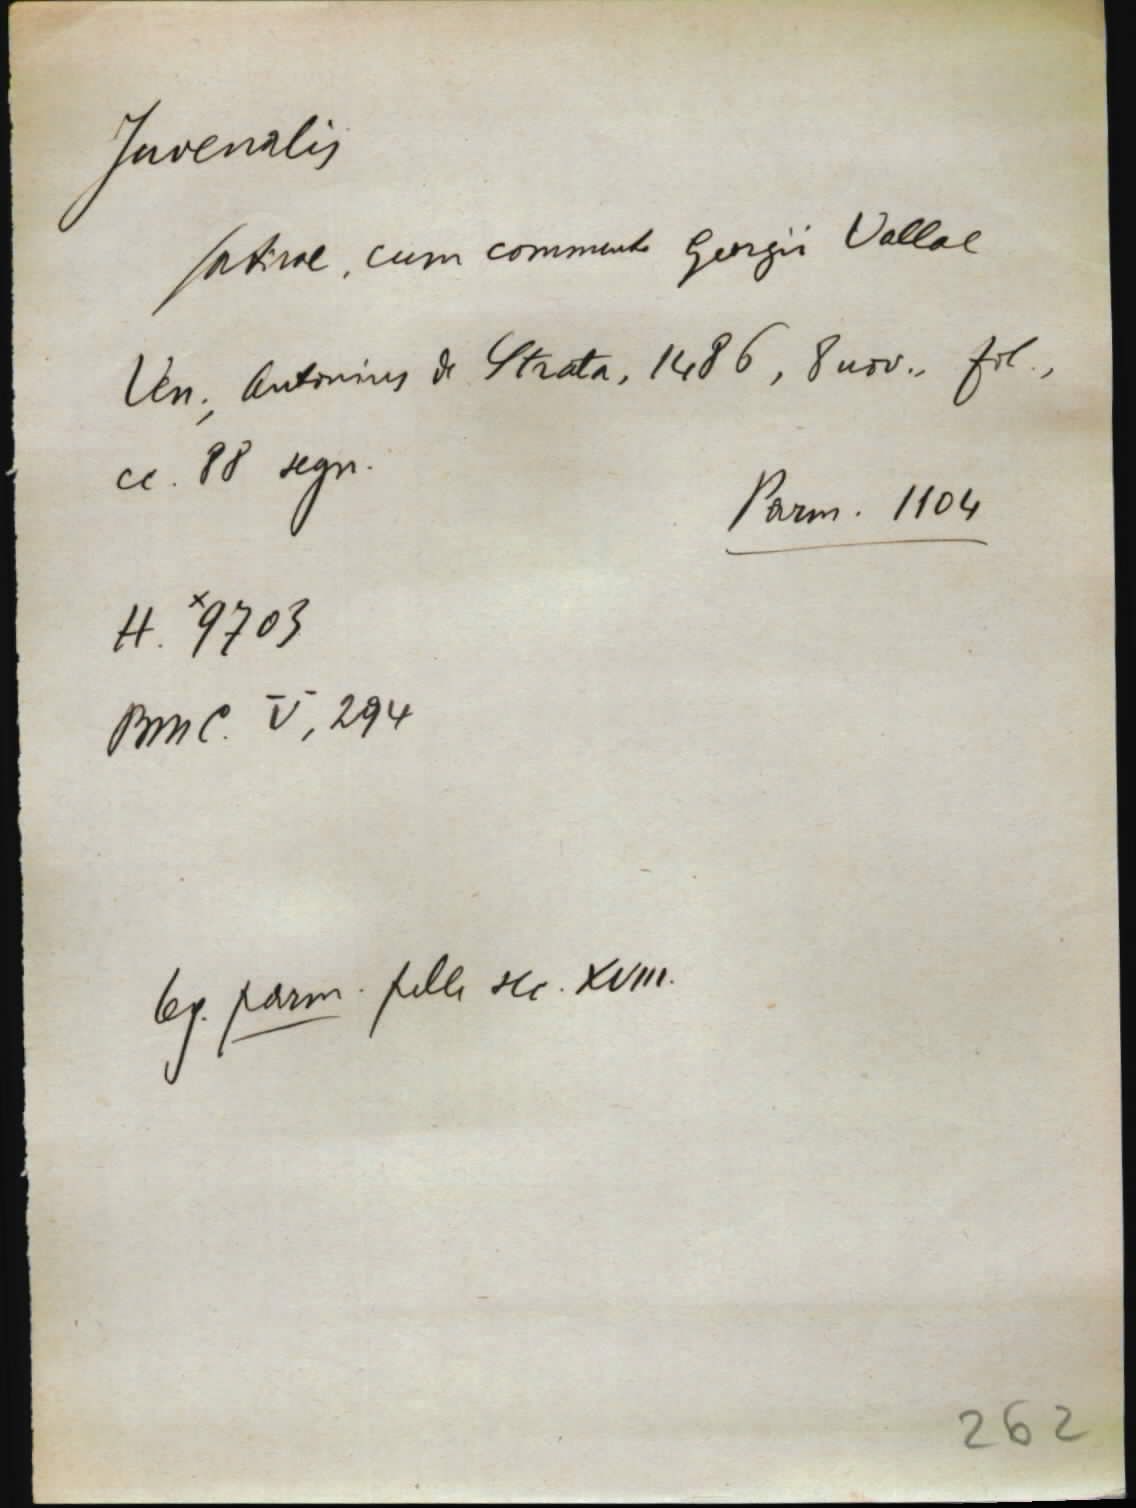 Juvenalis
Satirae, cum commento Georgii Vallae
Ven., Antonius de Strata, 1486, 8 nov., fol.,
cc. 88 segn.
Parm. 1104
H. *9703
BMC. V, 294
leg. parm. pelle sec. XVIII.
262